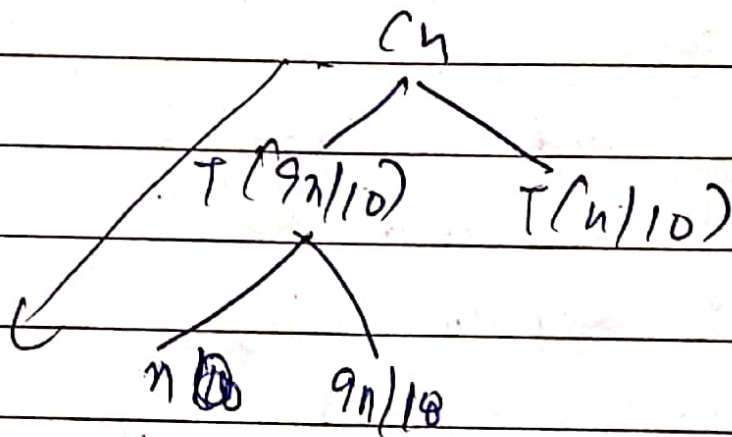 Cn
T(9n/10) T(n/10)
n/10 9n/10